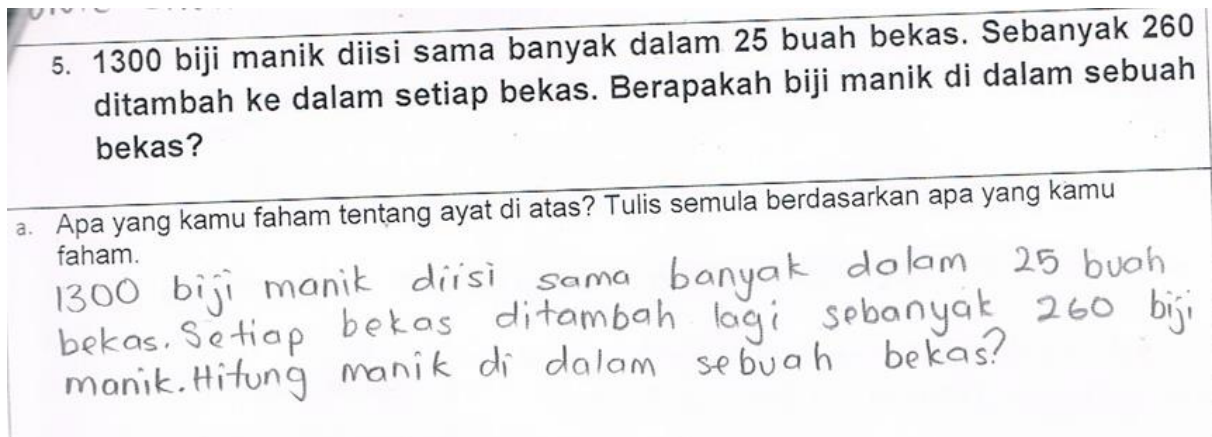 5. 1300 biji manik diisi sama banyak dalam 25 buah bekas. Sebanyak 260
ditambah ke dalam setiap bekas. Berapakah biji manik di dalam sebuah
bekas?
a. Apa yang kamu faham tentang ayat di atas? Tulis semula berdasarkan apa yang kamu
faham.
1300 biji manik diisi sama banyak dalam 25 buah
bekas. Setiap bekas ditambah lagi sebanyak 260 biji
manik. Hitung manik di dalam sebuah bekas?